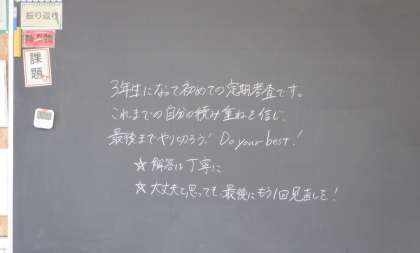 振り返り
課題
3年生になって初めての定期考査です。
これまでの自分の積み重ねを信じ、
最後までやり切ろう! Do your best!
☆ 解答は丁寧に
☆ 大丈夫と思っても、最後にもう1回見直しを!